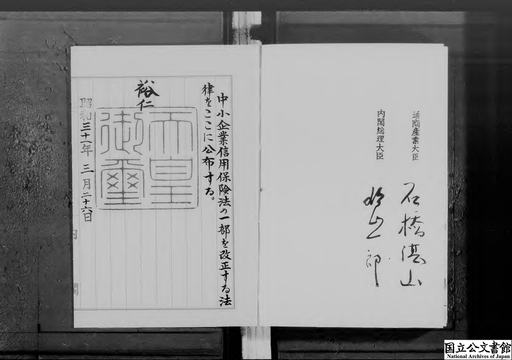 中小企業信用保険法の一部を改正する法
律をここに公布する。
裕仁
天皇
御璽
昭和三十一年三月二十六日
通商産業大臣
石橋湛山
内閣総理大臣
一郎
国立公文書館
National Archives of Japan